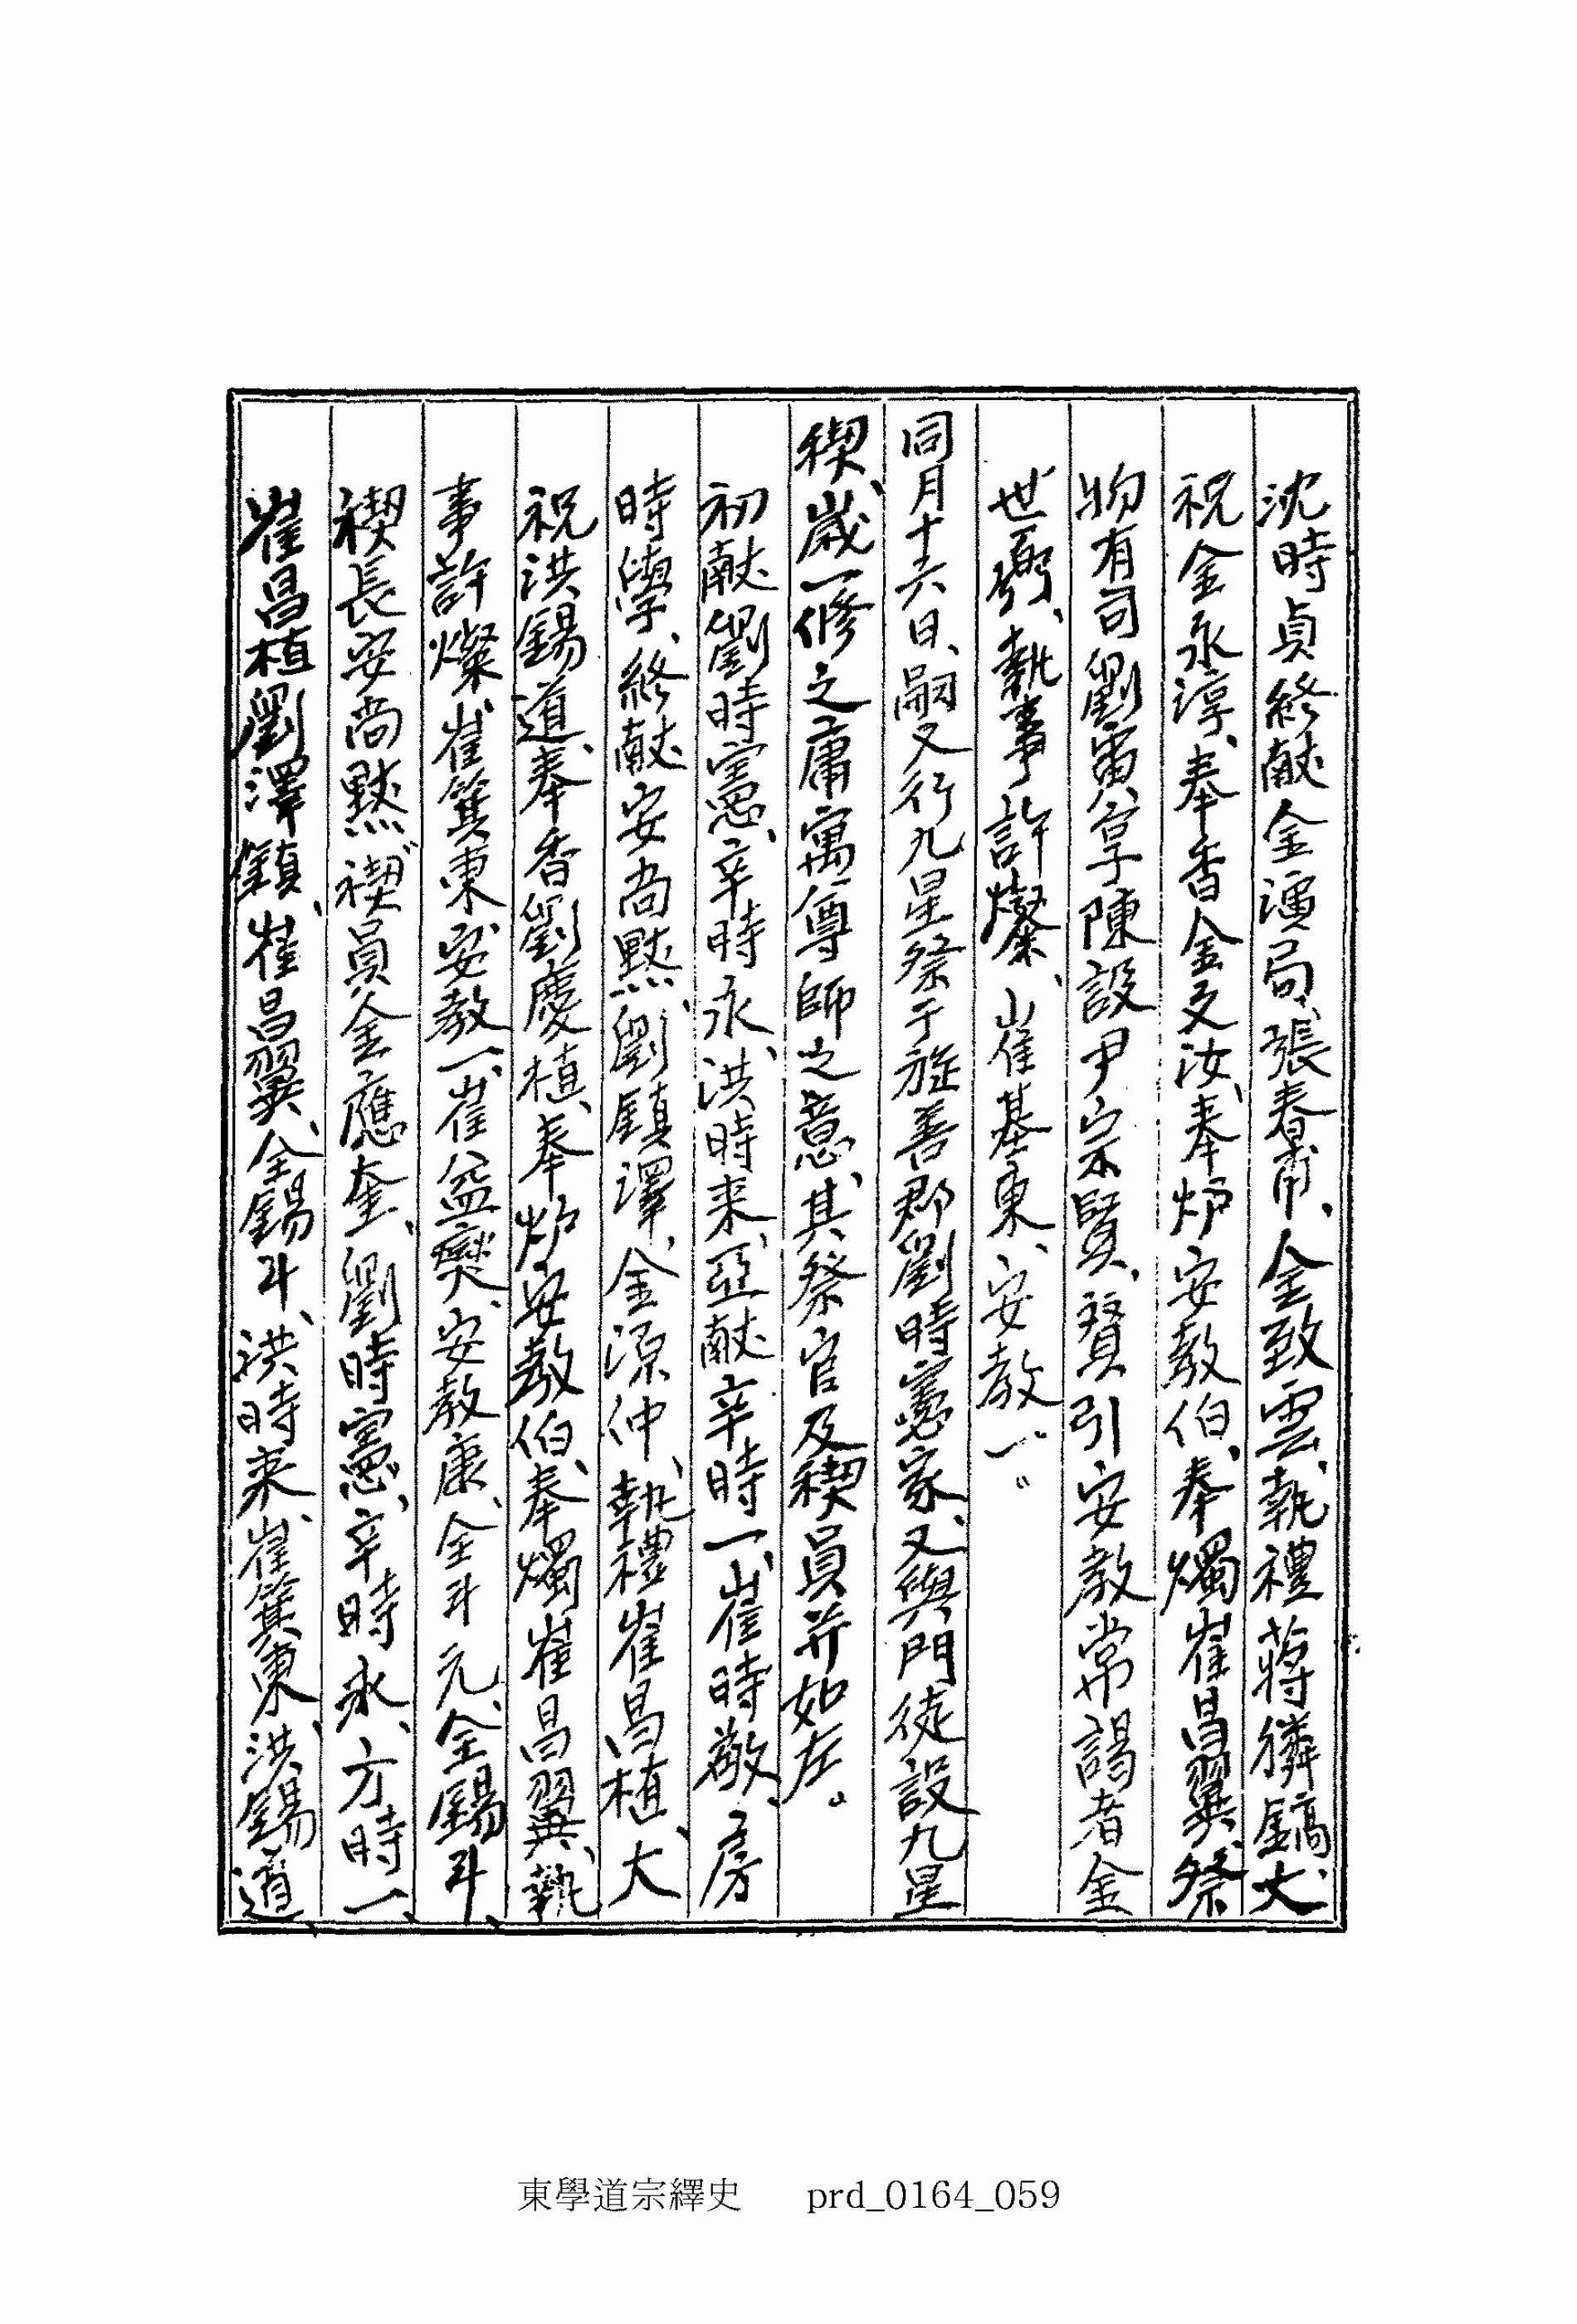 沈時貞終献金演局、張春甫、全致雲、執禮蔣隣鎬、大
祝金永淳、奉香金文汝、奉炉安教伯、奉燭崔昌翼、祭
物有司劉寅享陳設尹宗賢、賛引安教常謁者金
世弼、執事許燦、崔基東、安教一。
同月十六日、嗣又行九星祭于旌善郡劉時憲家、又與門徒設九星
稧、歲一修之庸寓尊師之意、其祭官及稧員并如左。
初献劉時憲、辛時永、洪時来、亞献辛時一、崔時敬、房
時學、終献安尚黙、劉鎮澤、金源仲、執禮崔昌植、大
祝洪錫道、奉香劉慶植、奉炉安教伯、奉燭崔昌翼、執
事許燦、崔箕東、安教一、崔益爕、安教康、全斗元、全錫斗、
稧長安尚黙、稧員金應奎、劉時憲、辛時永、方時一、
崔昌植劉澤鎮、崔昌翼、全錫斗、洪時来、崔箕東、洪錫道、
東學道宗繹史 prd_0164_059